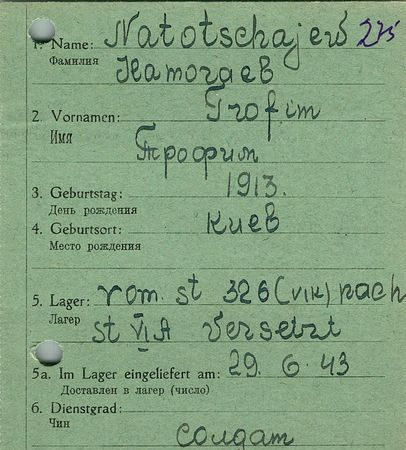 1. Name: Natotschajew 275
Фамилия Натогаев
2. Vornamen: Trofim
Имя
Трофим
3. Geburtstag: 1913.
День рождения
4. Geburtsort: Киев
Место рождения
5. Lager: vom. st 326 (VIK) nach
Лагер st VI A versetzt
5a. Im Lager eingeliefert am: 29. 6. 43
Доставлен в лагер (число)
6. Dienstgrad:
Чин
солдат